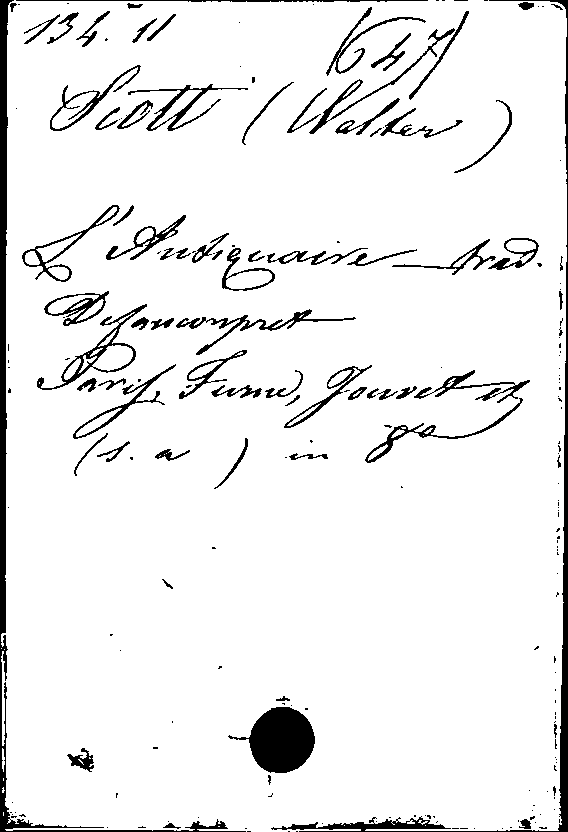 134. 11 (647)
Scott (Walter)
L'Antiquaire — trad.
Defauconpret
Paris, Furne, Jouvet et
(s. a ) in 8º